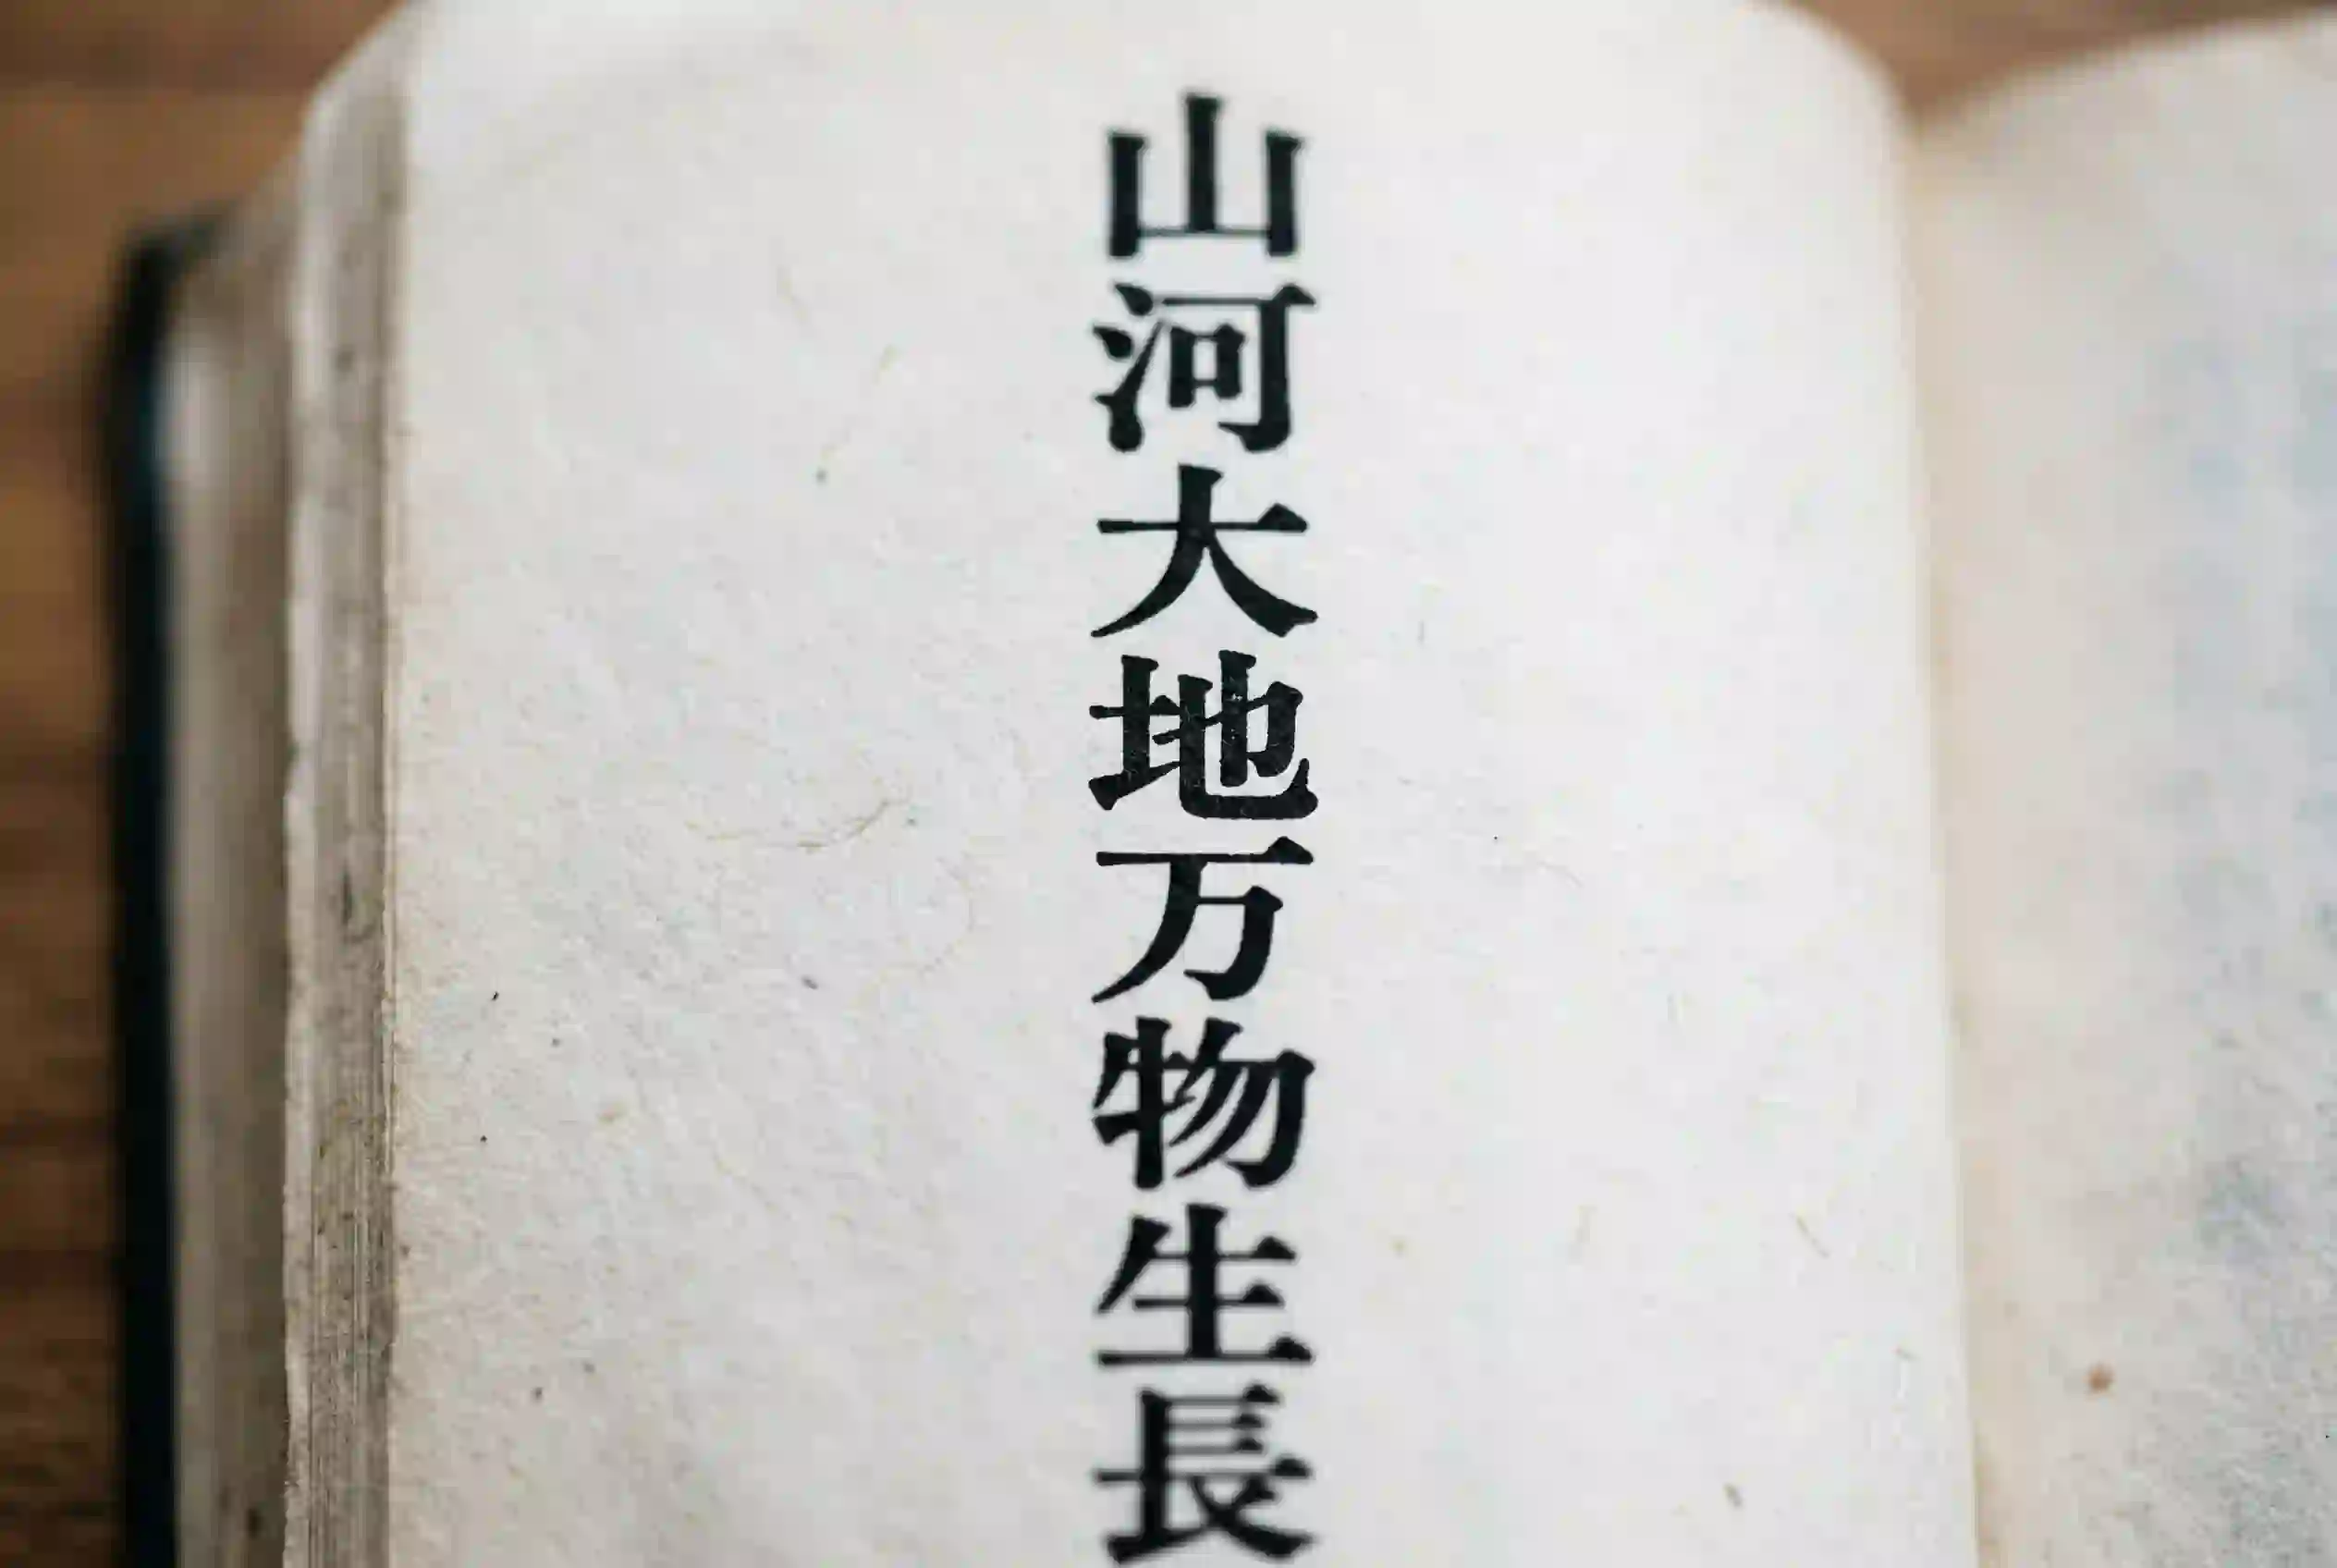 山河大地万物生長